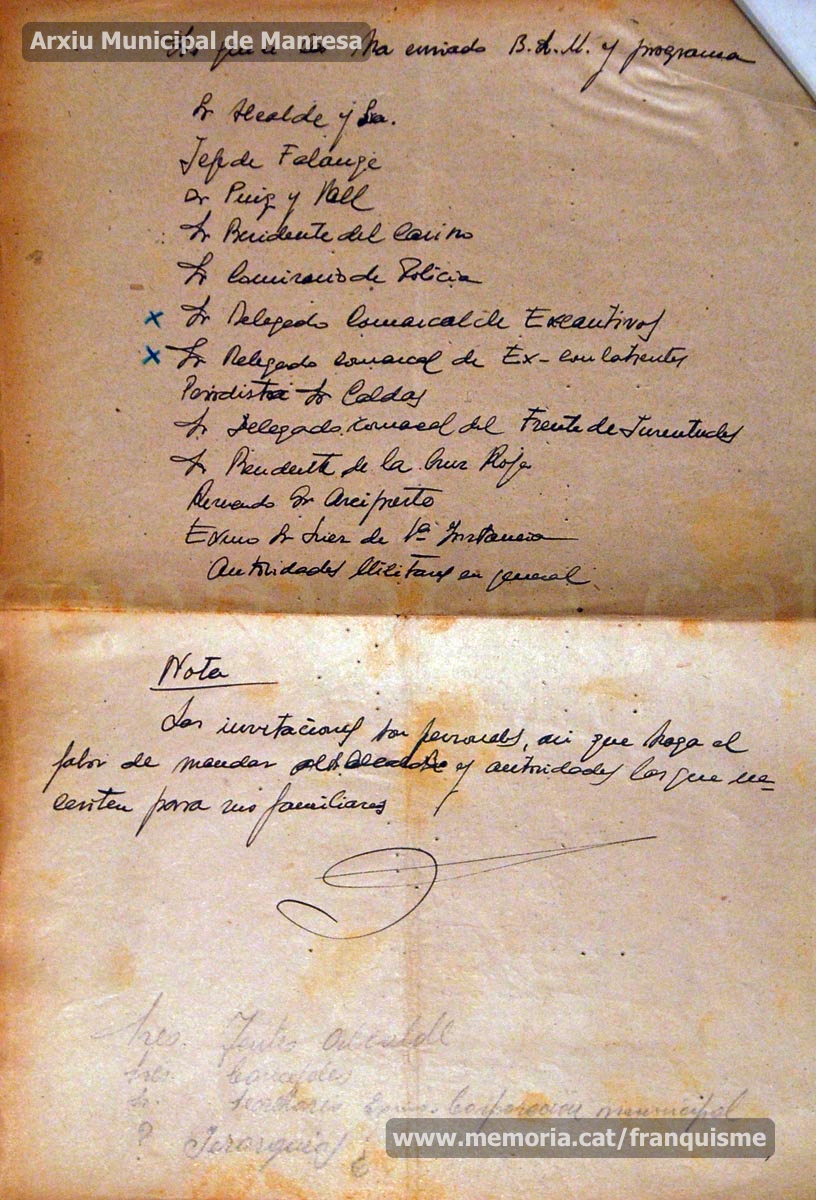 Arxiu Municipal de Manresa
que se les ha enviado B.L.M. y programa
Sr Alcalde y Sra.
Jefe de Falange
Sr Puig y Vall
Sr Presidente del Casino
Sr Comisario de Policia
x Sr Delegado Comarcal de Excautivos
x Sr Delegado comarcal de Ex-combatientes
Periodista Sr Caldas
Sr Delegado comarcal del Frente de Juventudes
Sr Presidente de la Cruz Roja
Reverendo Sr Arcipreste
Exmo Sr Juez de 1ª Instancia
Autoridades Militares en general
Nota
Las invitaciones son personales, asi que haga el
fabor de mandar al Sr Alcalde y autoridades las que ne-
cesiten para sus familiares
Sres. Ttes Alcalde
Sres. Concejales
Sr. Secretario Exma. Corporación municipal
? Jerarquias ?
www.memoria.cat/franquisme